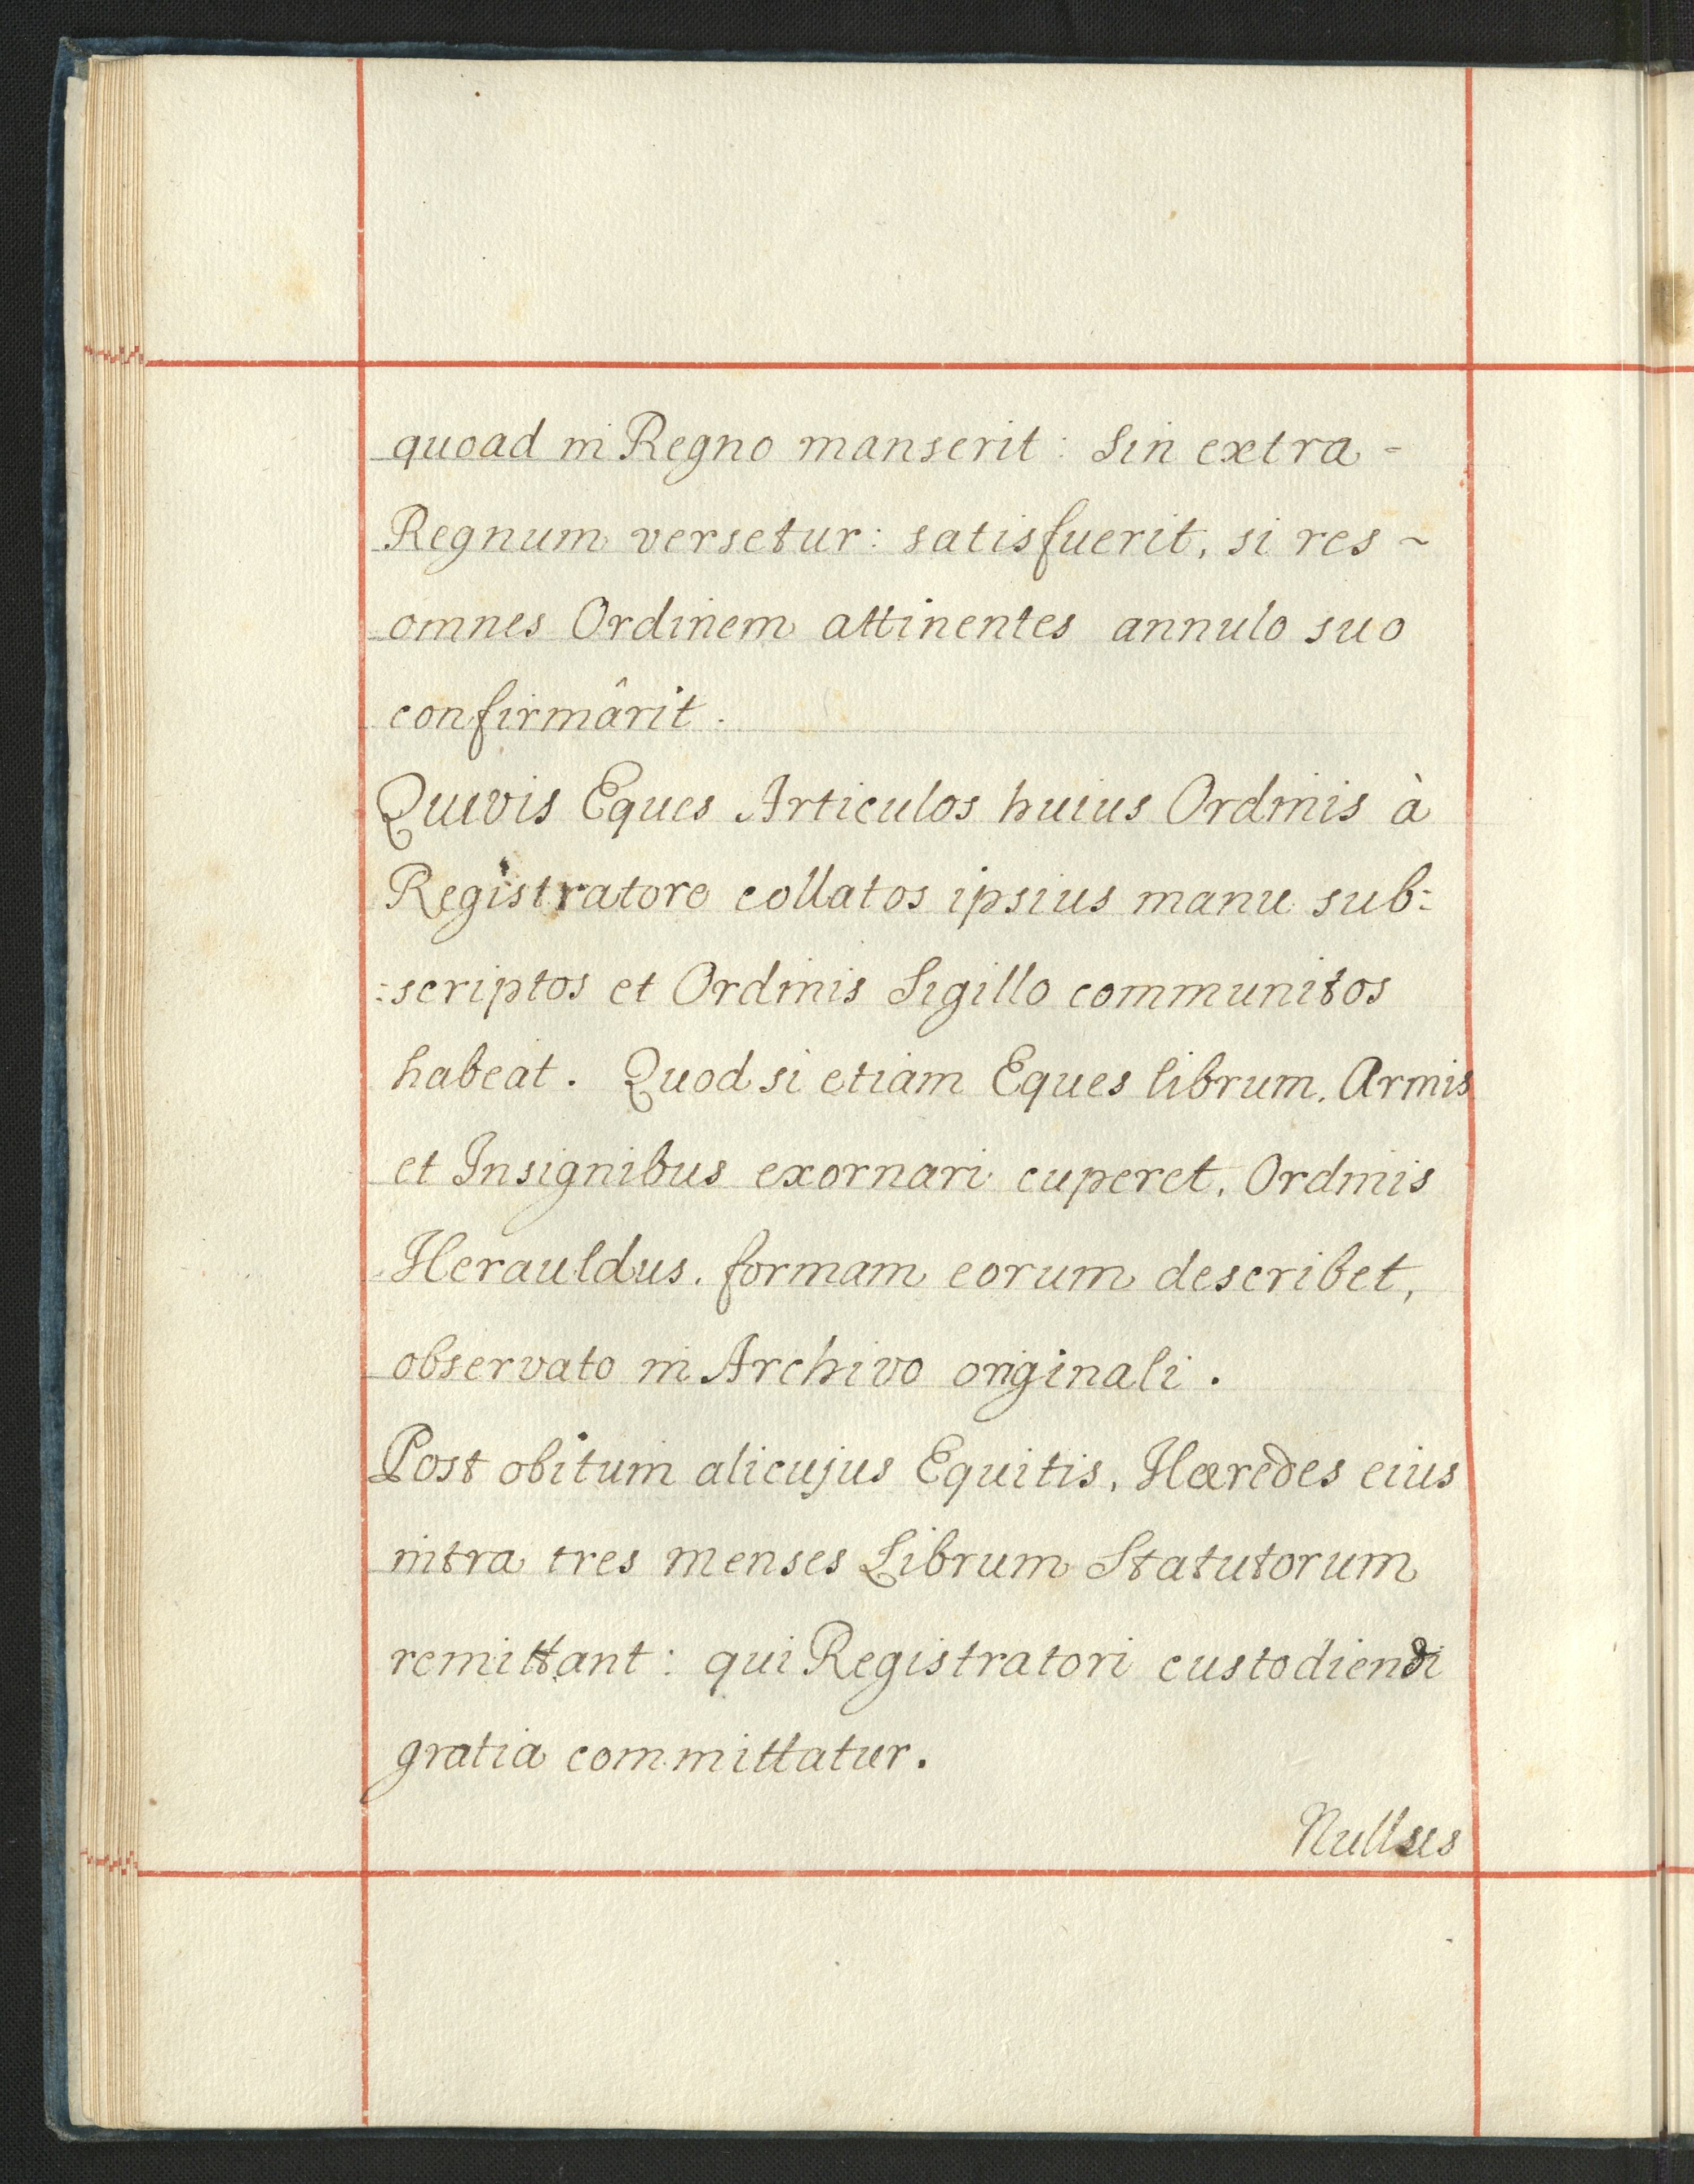 quoad in Regno manserit: Sin extra -
Regnum versetur: satisfuerit, si res ~
omnes Ordinem attinentes annulo suo
confirmârit.
Quivis Eques Articulos huius Ordinis à
Registratore collatos ipsius manu sub:
:scriptos et Ordinis Sigillo communitos
habeat. Quod si etiam Eques librum, Armis
et Insignibus exornari cuperet, Ordinis
Herauldus, formam eorum describet,
observato in Archivo originali.
Post obitum alicujus Equitis, Hæredes eius
intra tres menses Librum Statutorum
remittant: qui Registratori custodiendi
gratia committatur.
Nullus